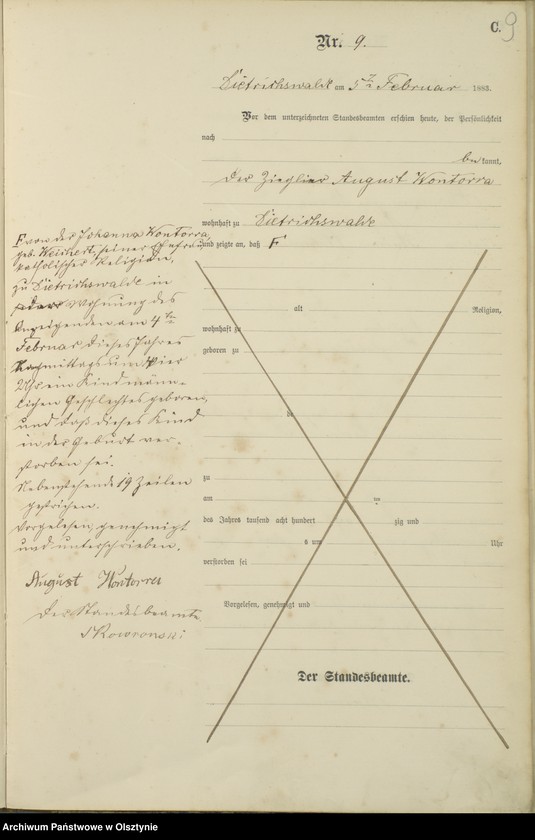 C. 9
Nr. 9.
Dietrichswalde am 5ten Februar 1883.
Vor dem unterzeichneten Standesbeamten erschien heute, der Persönlichkeit
nach
bekannt,
der Ziegler August Wontorra
wohnhaft zu Dietrichswalde
und zeigte an, daß F
F von der Johanna Wontorra,
geb. Weichert, seiner Ehefrau
katholischer Religion,
zu Dietrichswalde in
der Wohnung des
Anzeigenden am 4ten
Februar dieses Jahres
Nachmittags um vier
Uhr ein Kind männ-
lichen Geschlechtes geboren,
und daß dieses Kind
in der Geburt ver-
storben sei.
Nebenstehende 19 Zeilen
gestrichen.
Vorgelesen, genehmigt
und unterschrieben.
August Wontorra
Der Standesbeamte
Skowronski
alt Religion,
wohnhaft zu
geboren zu
de
zu
am
des Jahres tausend acht hundert zig und
s um Uhr
verstorben sei
Vorgelesen, genehmigt und
Der Standesbeamte.
Archiwum Państwowe w Olsztynie